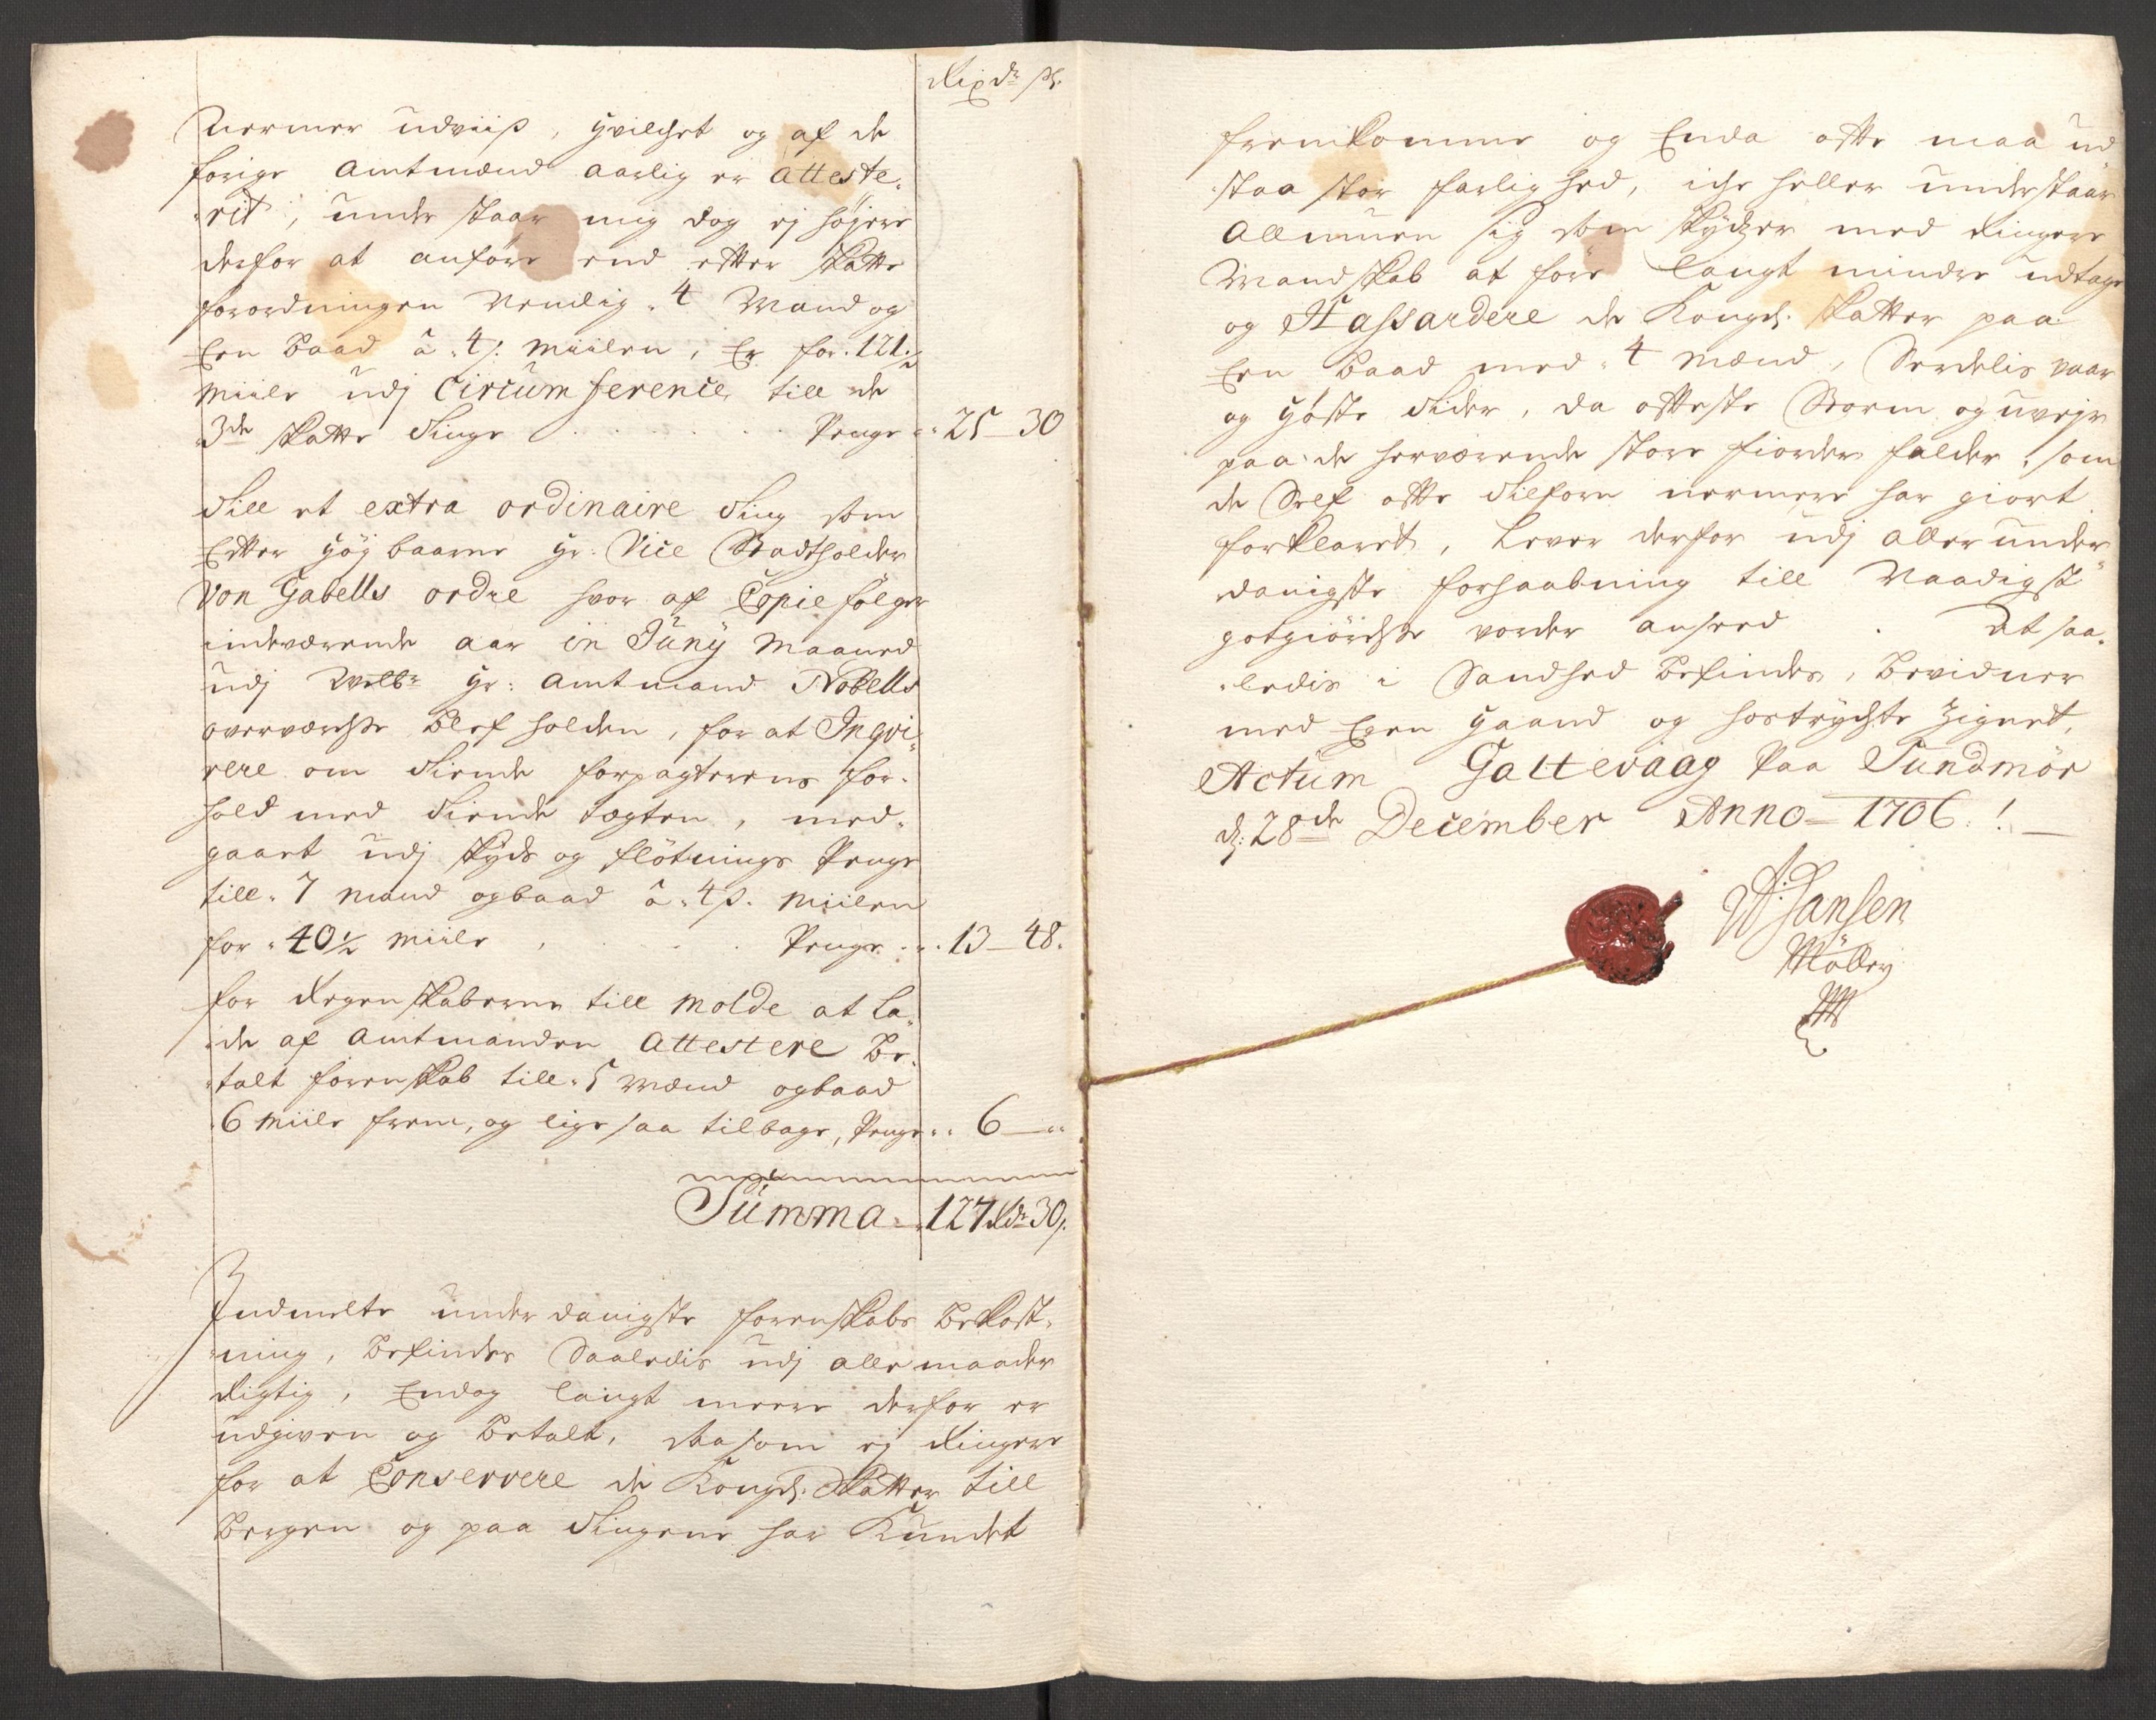 Rixdr ß.
Nermer udviiß, Hvilchet og af de
forige Amtmænd aarlig er atteste,
rit, under staar mig dog ej høyere
derfor at anføre end etter Skatte
forordningen Nemlig. 4 Mand og
Een Baad â 4 ß. Miilen, Er for. 121 ½
Miile udj Circumference, till de
3de Skatte Tinge . . . . . . Penge .. 25 – 30
Till et extra ordinaire Ting som
Etter Høybaarne Hr: Vice Stadtholder
Von Gabells ordre hvor af Copie følger
indeværende aar in Juny Maaned
udj Welbr Hr: Amtmand Nobells
overværelse blef holden, for at Inqvi,
rere om Tiende forpagterens for,
hold med Tiende tagten, med,
gaaet udj Skyds og fløtnings Penge
till. 7 mand og baad â. 4 ß. Miilen
for. 40 ½ Miile . . . . Penge .. 13 – 48.
for Regenskaberne till Molde at La,
de af Amtmanden Attestere Be,
talt forenskab till. 5 Mænd og baad
6 Miile frem, og lige saa tilbage, Penge .. 6 – „
Summa .. 127 Rdr 30 ß.
Indmelte under danigste forenskabs Bekost,
ning, befindes Saaledis udj alle maader
Rigtig, Endog langt meere derfor er
udgiven og betalt, saa som ej Ringere
for at Conservere de Kongel: Skatter till
Bergen og paa Tingene har Kundet
fremkomme og Enda otte maa ud
staa stor farlighed, iche heller understaar
Allmuen sig som skydzer med Ringere
Mandskab at føre langt mindre udtage
og Hassardere de Kongel: Skatter paa
Een Baad med 4 Mænd, Serdelis vaar
og Høste Tider, da otteste Storm og uvejr
paa de herværende store fiorder falder, som
de Self otte Tilforn nermere har giort
forklaret, Lever derfor udj aller under
danigste forhaabning till Naadigst
gotgiørelse vorder anseed . Dit saa,
ledis i Sandhed befindes, bevidner
med Egen Haand og hostrychte Zignet,
Actum Gattevaag Paa Sundmør
d: 28de December Anno – 1706. ! –
Jansen
Møller